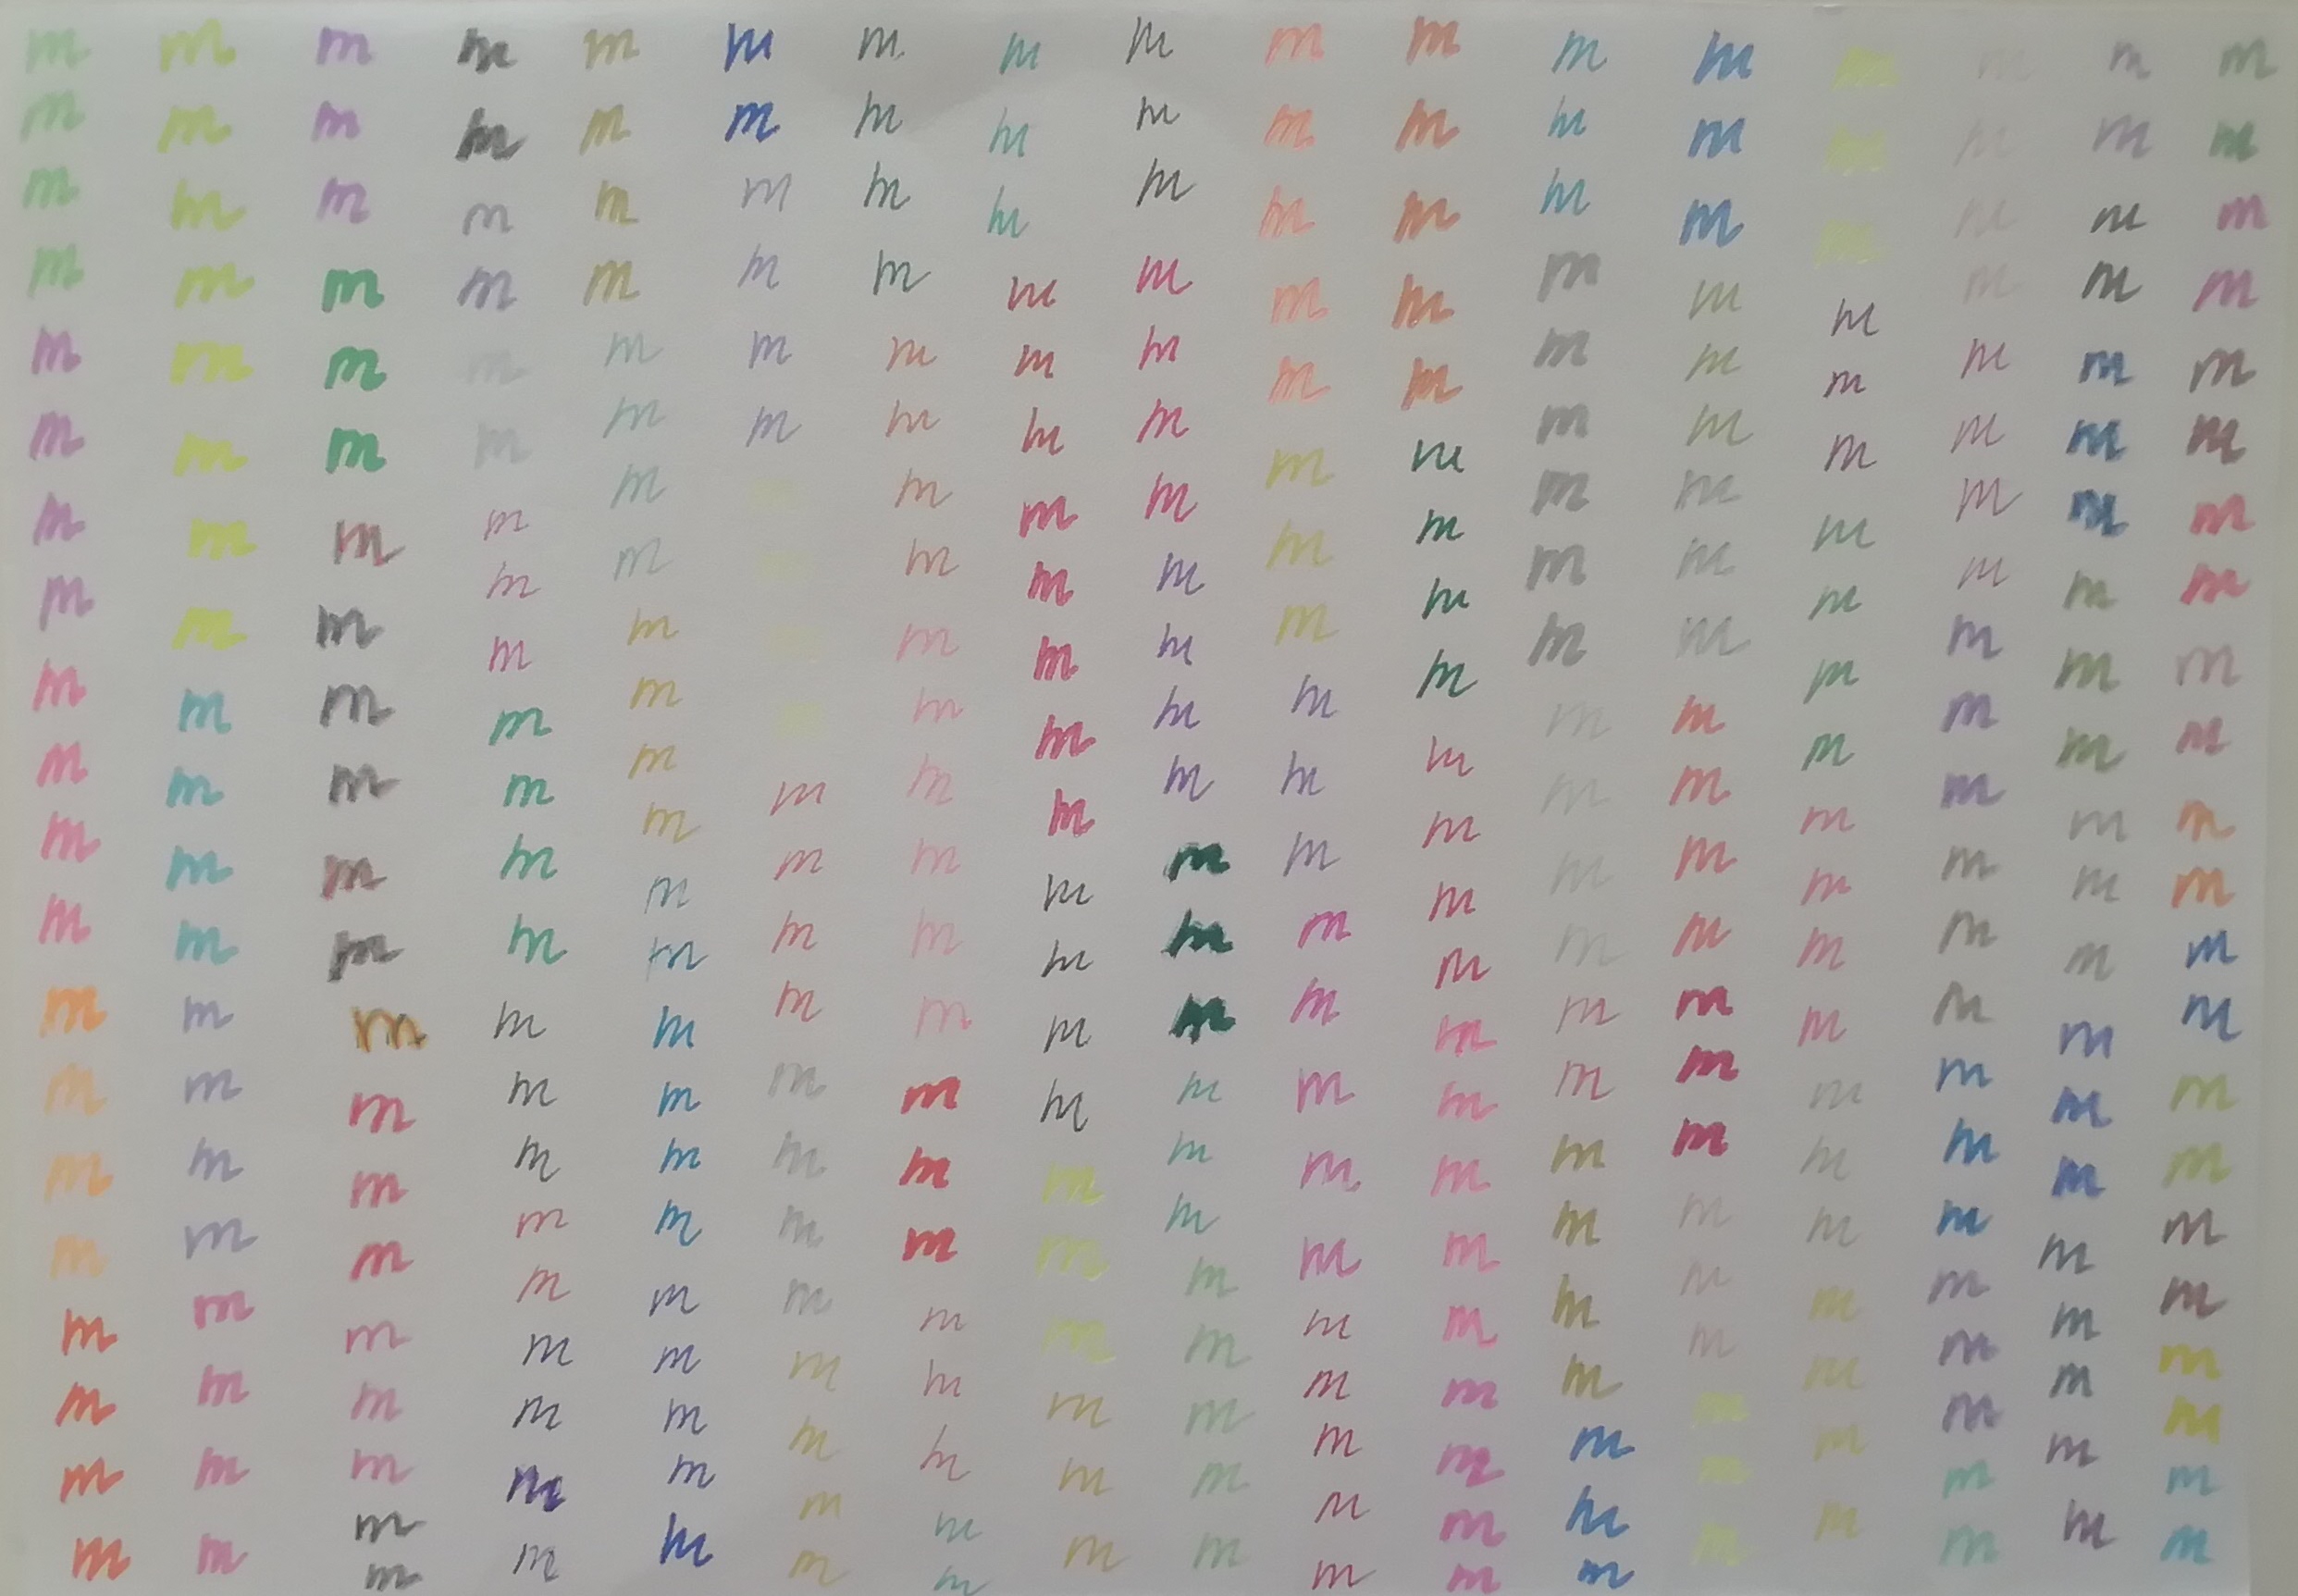 m m m m m m m m m m m m m m m m m
m m m m m m m m m m m m m m m m m
m m m m m m m m m m m m m m m m m
m m m m m m m m m m m m m m m m m
m m m m m m m m m m m m m m m m m
m m m m m m m m m m m m m m m m m
m m m m m m m m m m m m m m m m m
m m m m m m m m m m m m m m m m m
m m m m m m m m m m m m m m m m m
m m m m m m m m m m m m m m m m m
m m m m m m m m m m m m m m m m m
m m m m m m m m m m m m m m m m m
m m m m m m m m m m m m m m m m m
m m m m m m m m m m m m m m m m m
m m m m m m m m m m m m m m m m m
m m m m m m m m m m m m m m m m m
m m m m m m m m m m m m m m m m m
m m m m m m m m m m m m m m m m m
m m m m m m m m m m m m m m m m m
m m m m m m m m m m m m m m m m m
m m m m m m m m m m m m m m m
m m m m m m m m m
m